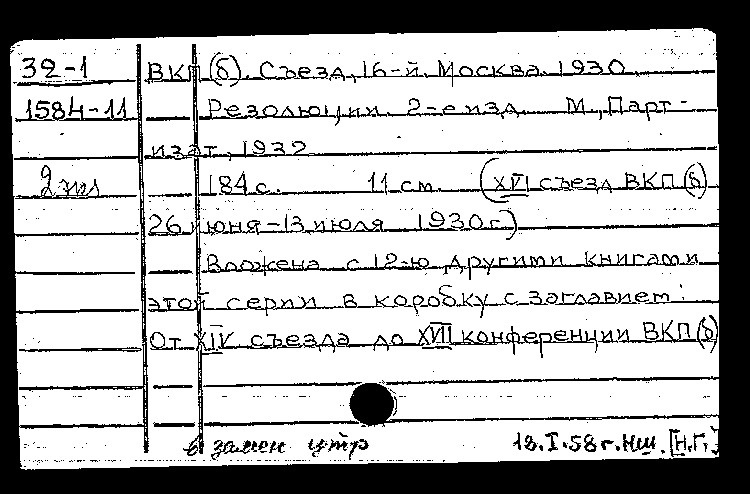 32-1 ВКП(б). Съезд, 16-й. Москва. 1930.
1584-11 Резолюции. 2-е изд. М., Парт-
издат, 1932
2 экз 184 с. 11 см. (XVI съезд ВКП(б)
26 июня-13 июля 1930 г.)
Вложена с 12-ю другими книгами
этой серии в коробку с заглавием:
От XIV съезда до XVII конференции ВКП(б)
взамен утр 18.I.58 г. Нш. [Н.Г.]